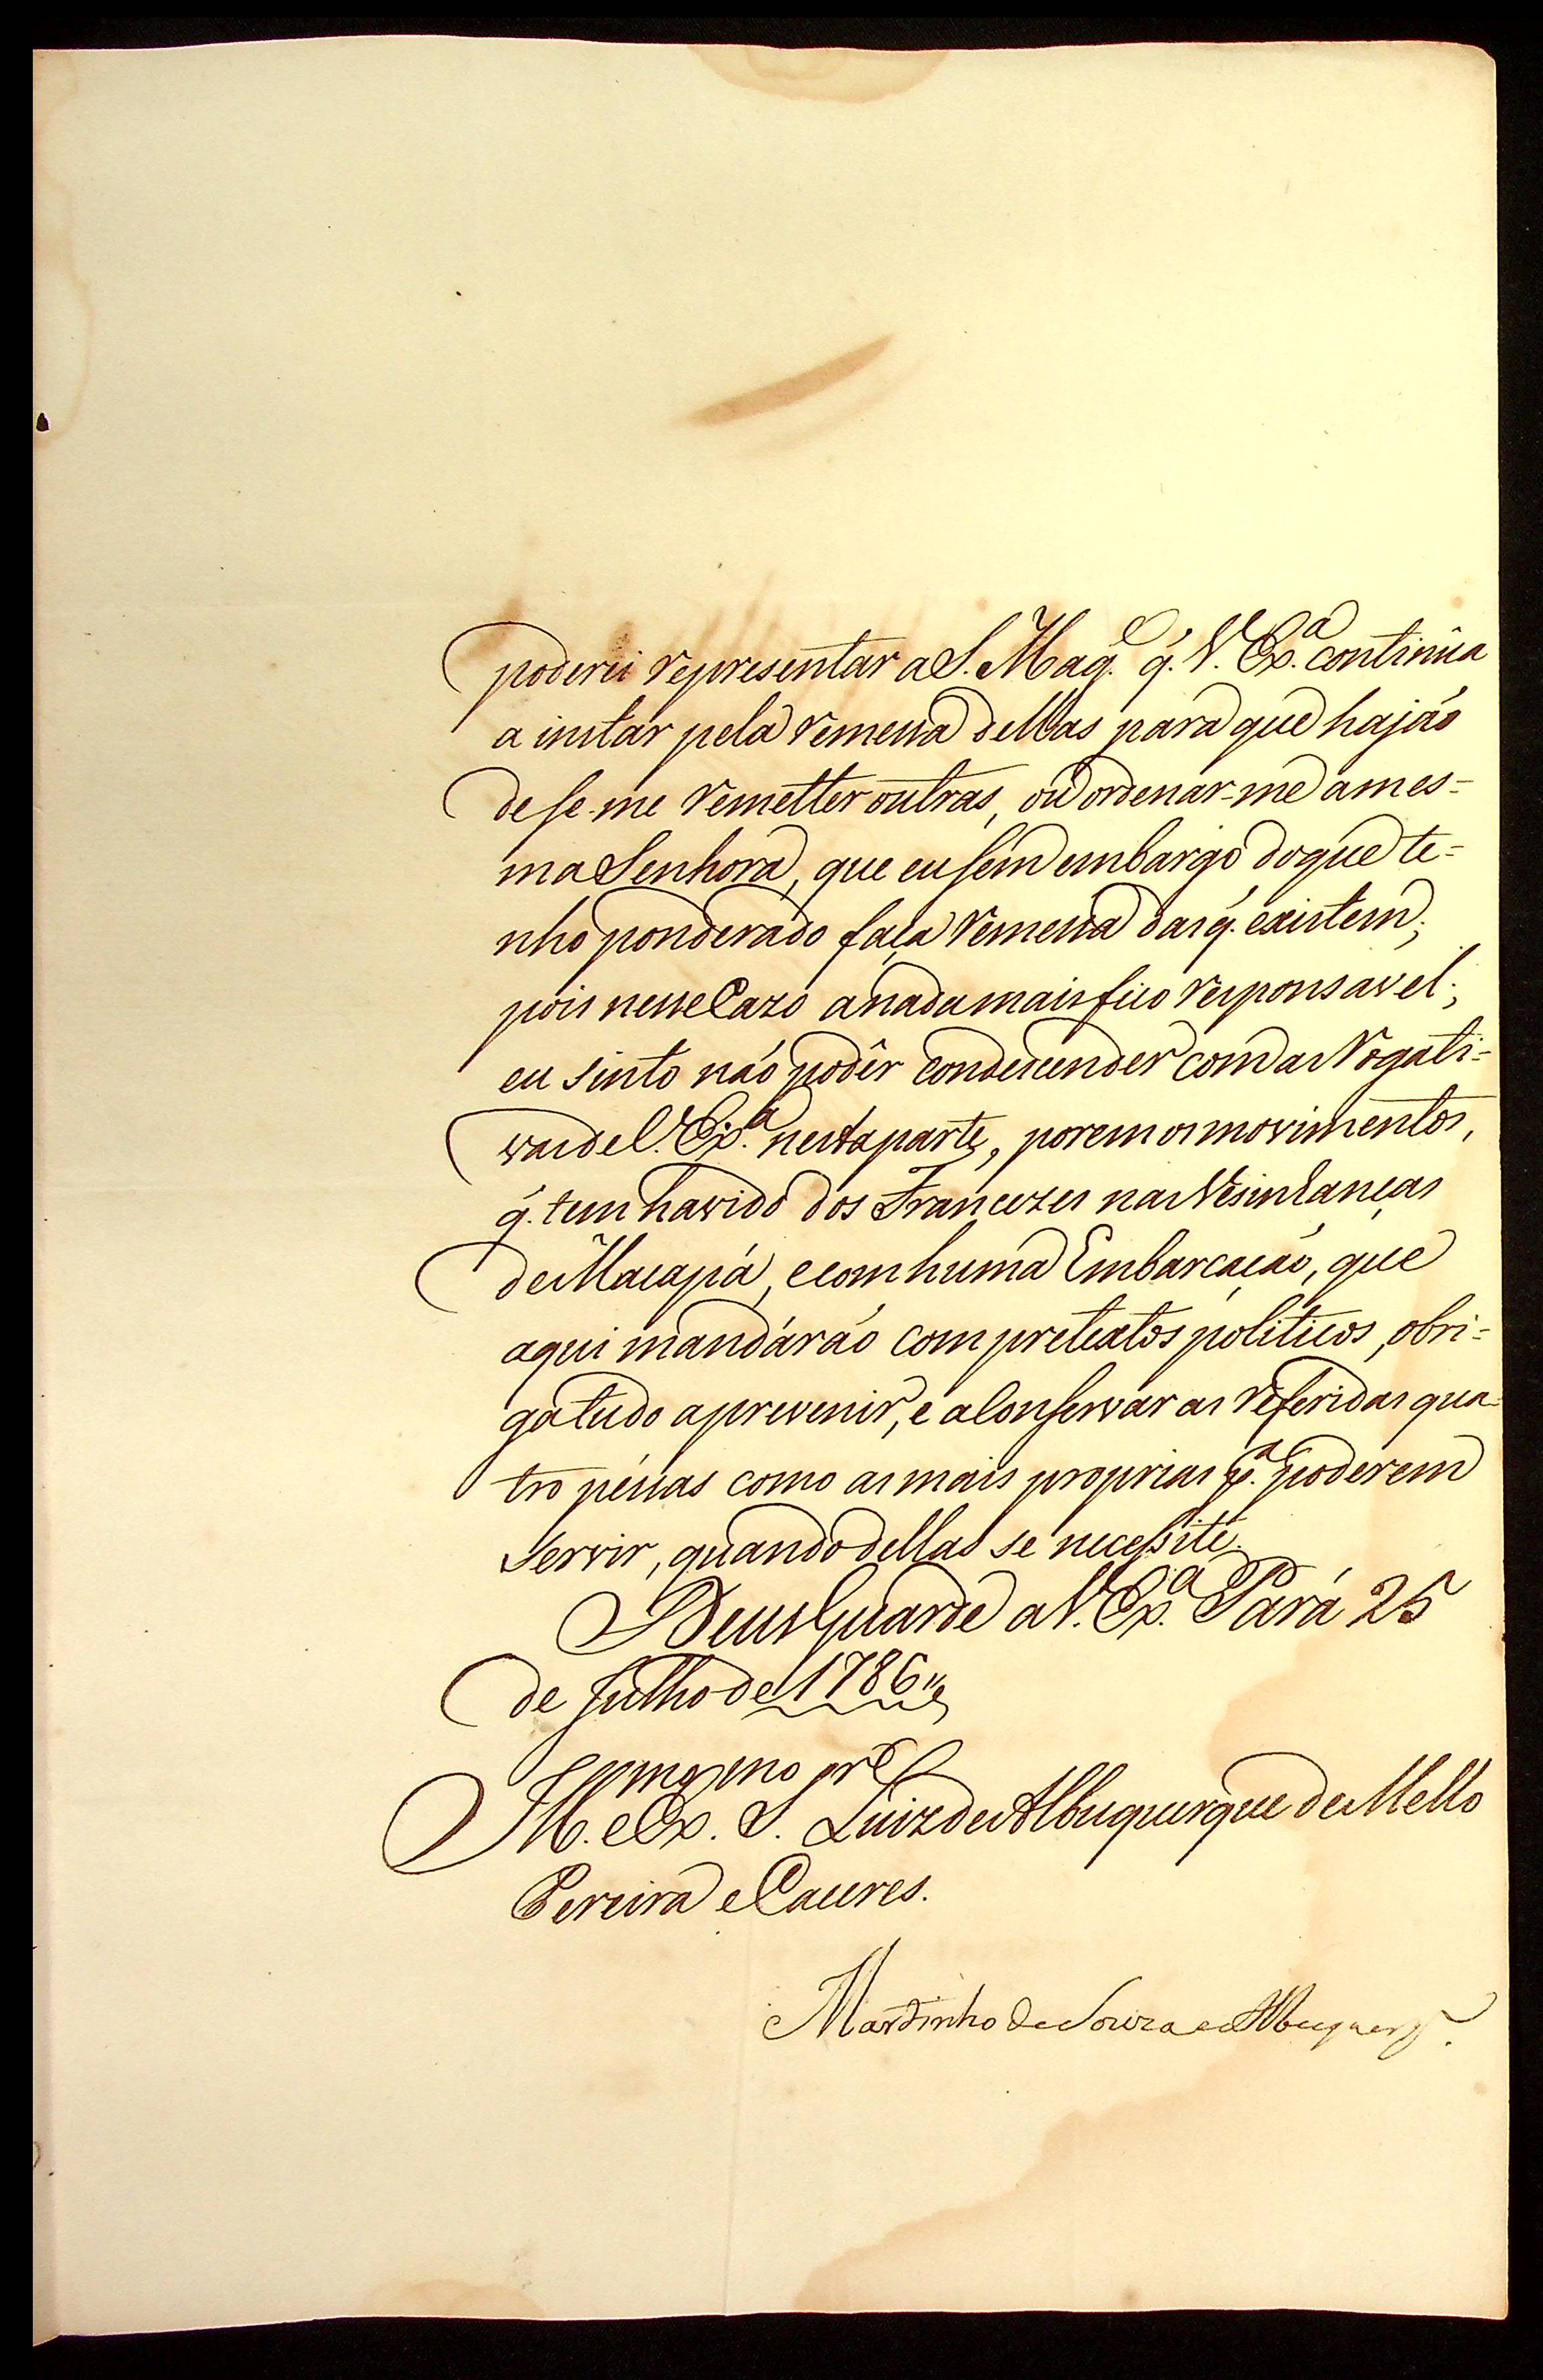 poderei representar a S. Mag.e q. V. Ex.a continûa
a instar pela remessa dellas para que hajáo
de se-me remetter outras, ou ordenar-me a mes=
ma Senhora, que eu sem embargo do que te=
nho ponderado faça remessa das q. existem;
pois nesse Cazo a nada mais fico responsavel;
eu sinto náo podêr condescender com as rogati=
vas de V. Ex.a nesta parte, porem os movimentos,
q. tem havido dos Francezes nas Vesinhanças
de Macapá, e com huma Embarcaçáo, que
aqui mandáráo com pretextos politicos, obri=
ga tudo a prevenir, e a Conservar as referidas qua-
tro péssas como as mais proprias p.a poderem
servir, quando dellas se necessite.
Deus Guarde a V. Ex.a Pará 25
de Julho de 1786
Ill.mo e Ex.mo S.r Luiz de Albuquerque de Mello
Pereira e Caceres.
Martinho de Souza e Albuquerq.